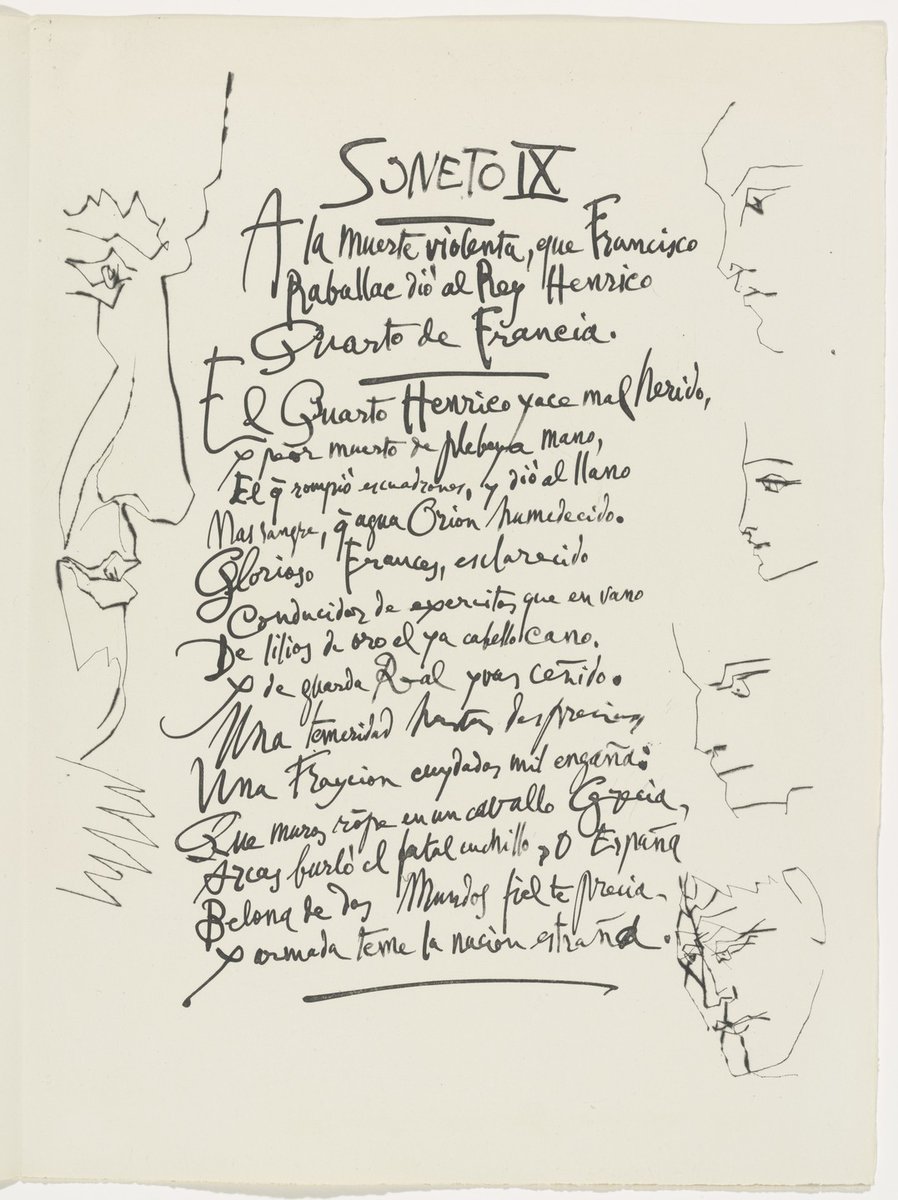 SONETO IX
A la muerte violenta, que Francisco
Raballac dió al Rey Henrico
Quarto de Francia.
El Quarto Henrico yace mal herido,
y peor muerto de plebeya mano,
El q̃ rompió escuadrones, y dió al llano
Mas sangre, q̃ agua Orion humedecido.
Glorioso Frances, esclarecido
Conducidor de exercitos que en vano
De lilios de oro el ya cabello cano,
y de guarda Real yvas ceñido.
Una temeridad hastas desprecia,
Una Traycion cuydados mil engaña:
Que muros rõpe en un cavallo Grecia,
Arcas burló el fatal cuchillo, O España
Belona de dos Mundos fiel te precia,
y armada teme la nación estraña.